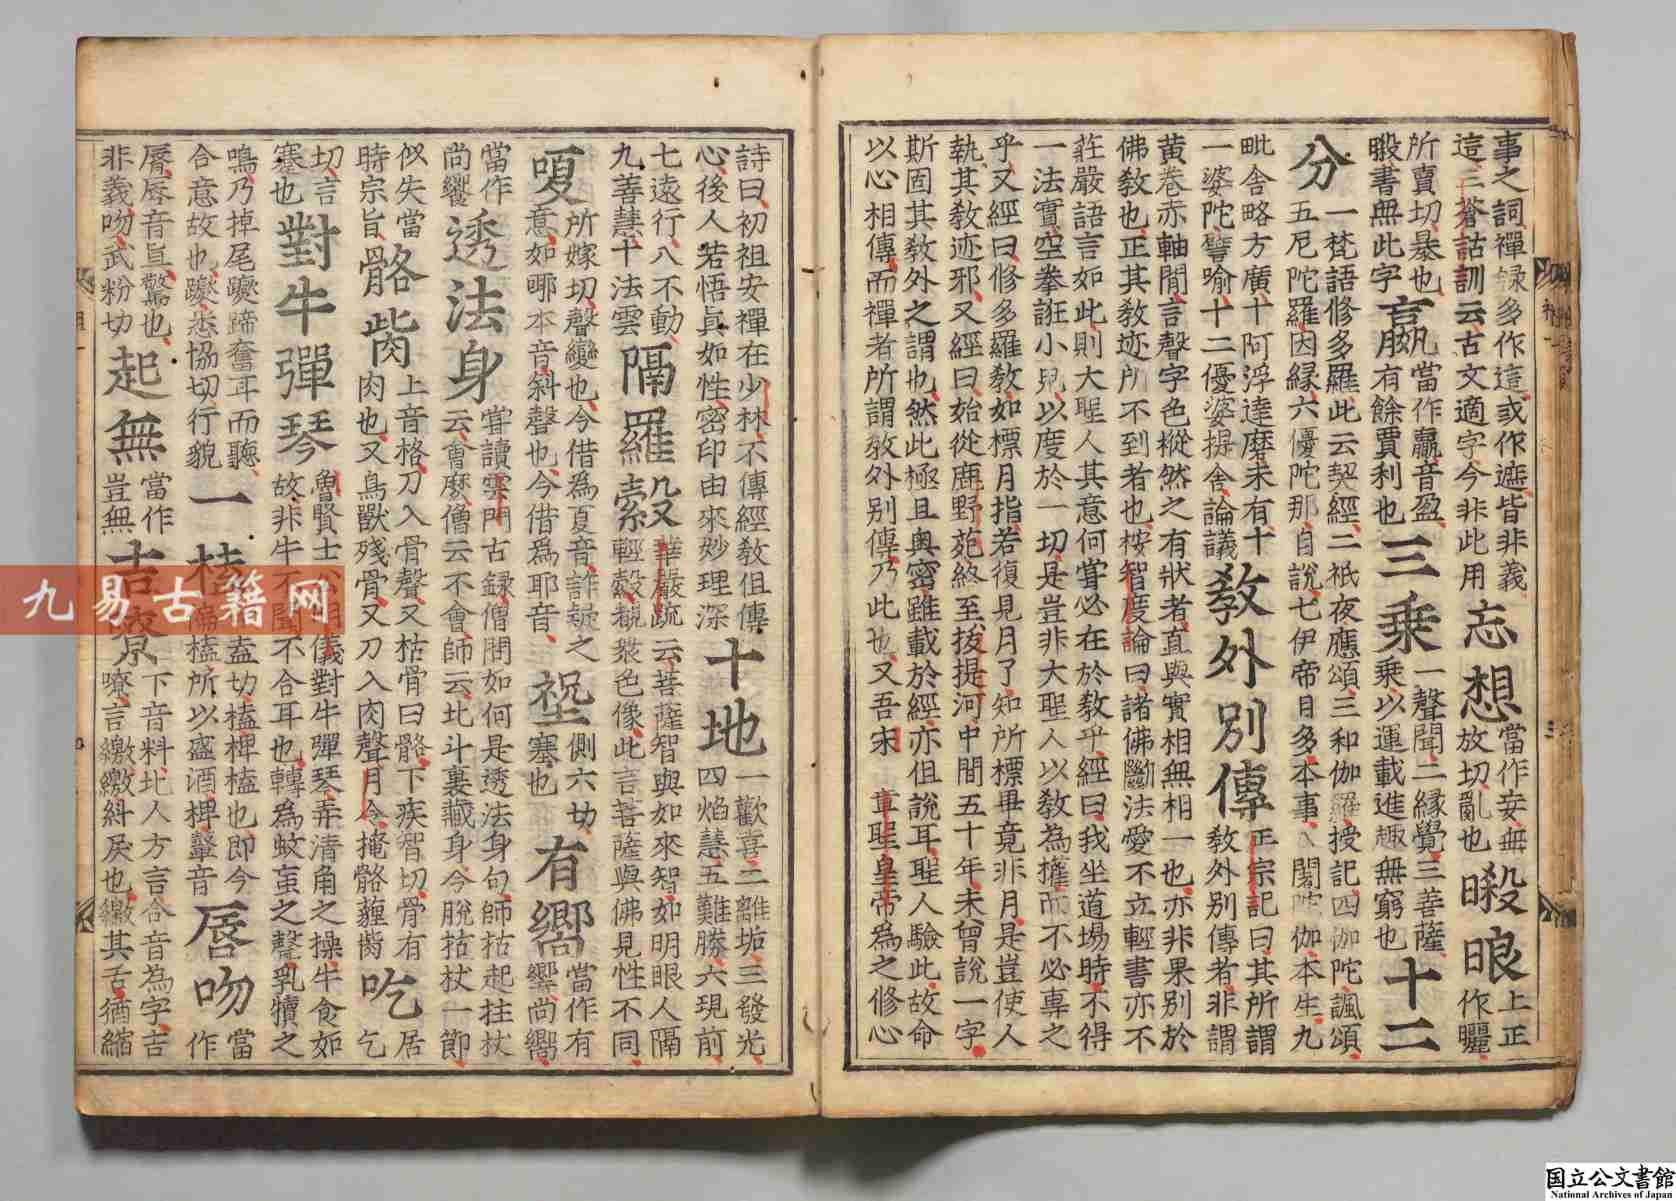 事之詞禪錄多作這或作遮皆非義
這三蒼詁訓云古文適字今非此用
忘想
當作妄無
放切亂也
上正
作曬
所賣切暴也
書無此字
當作贏音盈
有餘賈利也
三乘
一聲聞二緣覺三善薩
乘以運載進趣無窮也
十二
分
一梵語修多羅此云契經二祇夜應頌三和伽羅授記四伽陀諷頌
五尼陀羅因緣六優陀那自說七伊帝目多本事八闍陀伽本生九
毗舍略方廣十阿浮達磨未有十
一婆陀譬喻十二優婆提舍論議
教外別傳
正宗記曰其所謂
教外別傳者非謂
黃卷赤軸間言聲字色樅然之有狀者直與實相無相一也亦非果別於
佛教也正其教迹所不到者也桉智度論曰諸佛斷法愛不立輕書亦不
莊嚴語言如此則大聖人其意何甞必在於教乎經曰我坐道場時不得
一法實空拳誑小兒以度於一切是豈非大聖人以教為權而不必專之
乎又經曰修多羅教如標月指若復見月了知所標畢竟非月是豈使人
執其教迹邪又經曰始從鹿野苑終至拔提河中間五十年未曾說一字
斯固其教外之謂也然此極且奧密雖載於經亦但說耳聖人驗此故命
以心相傳而禪者所謂教外別傳乃此也又吾宋 章聖皇帝為之修心
詩曰初祖安禪在少林不傳經教但傳
心後人若悟真如性密印由來妙理深
十地
一歡喜二離垢三發光
四焰慧五難勝六現前
七遠行八不動
九善慧十法雲
隔羅縠
華嚴疏云菩薩智與如來智如明眼人隔
輕縠覩衆色像此言菩薩與佛見性不同
嗄
所嫁切聲變也今借為夏音詐疑之
意如哪本音斜聲也今借為耶音
柷
側六切
塞也
有嚮
當作有
響尚嚮
當作
尚饗
透法身
甞讀雲門古錄僧問如何是透法身句師拈起拄杖
云會麽僧云不會師云北斗裏藏身今脫拈杖一節
似失當
時宗旨
骼胔
上音格刀入骨聲又枯骨曰骼下疾智切骨有
肉也又鳥獸殘骨又刀入肉聲月令掩骼薶胔
吃
居
乞
切言
蹇也
對牛彈琴
魯賢士公明儀對牛彈琴弄清角之操牛食如
故非牛不聞不合耳也轉為蚊䖟之聲乳犢之
鳴乃掉尾躞蹄奮耳而聽
合意故也躞悉協切行貌
一榼
榼苦盍切榼椑榼也即今
偏榼所以盛酒椑鼙音
脣吻
當
作
脣脣音真驚也
非義吻武粉切
起無
當作
豈無
吉嘹
下音料北人方言合音為字吉
嘹言繳繳糾戾也繳其舌猶縮
九易古籍网
国立公文書館
National Archives of Japan